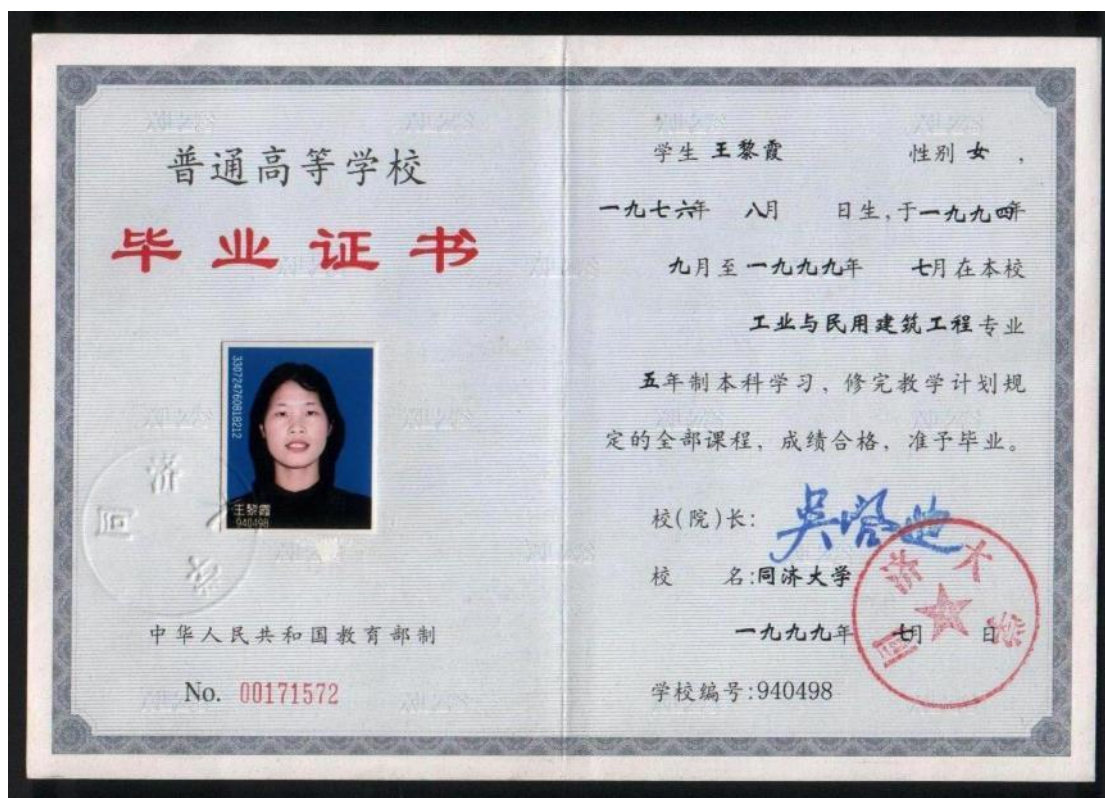 普通高等学校
毕业证书
330724760818212
王黎霞
940498
同济大学
中华人民共和国教育部制
No. 00171572
学生 王黎霞 性别 女 ,
一九七六年 八月 日生,于一九九四年
九月至一九九九年 七月在本校
工业与民用建筑工程专业
五年制本科学习、修完教学计划规
定的全部课程,成绩合格,准予毕业。
校(院)长: 吴启迪
校 名:同济大学
一九九九年 七月 日
同济大学
学校编号:940498